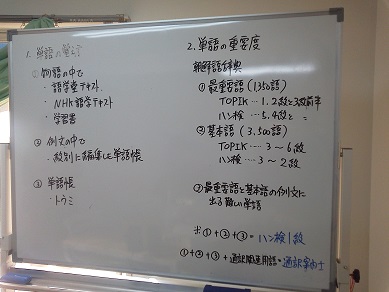 1. 単語の覚え方
① 物語の中で
・語学堂テキスト
・NHK語学テキスト
・学習書
② 例文の中で
・級別に編集した単語帳
③ 単語帳
・トウミ
2. 単語の重要度
朝鮮語辞典
① 最重要語(1350語)
TOPIK… 1.2級と3級前半
ハン検 …5.4級と 〃
② 基本語 (3.500語)
TOPIK…. 3〜6級
ハン検 …. 3〜2級
③ 最重要語と基本語の例文に
出る難しい単語
※ ①+②+③= ハン検1級
①+②+③+通訳関連用語=通訳案内士